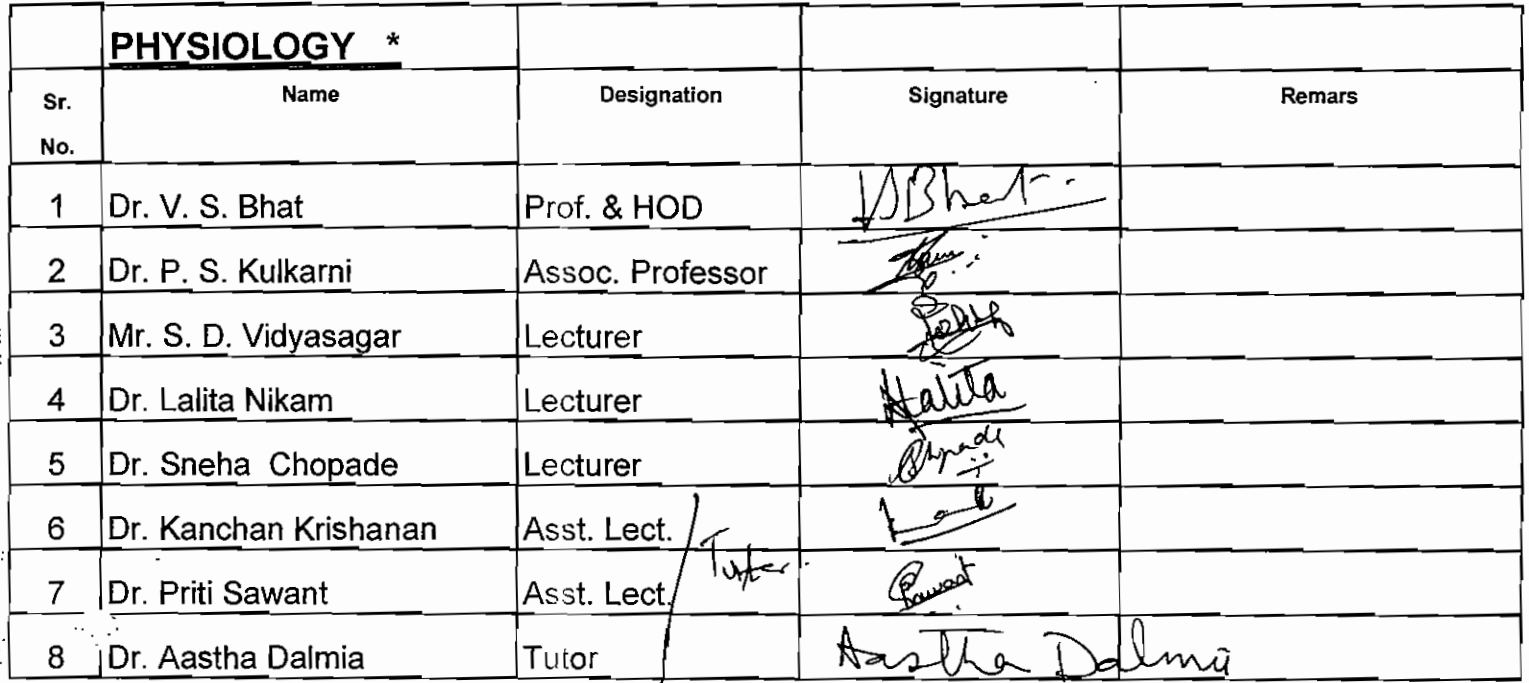 PHYSIOLOGY *
Sr. No. Name Designation Signature Remars
1 Dr. V. S. Bhat Prof. & HOD VSBhat
2 Dr. P. S. Kulkarni Assoc. Professor
3 Mr. S. D. Vidyasagar Lecturer
4 Dr. Lalita Nikam Lecturer Lalita
5 Dr. Sneha Chopade Lecturer
6 Dr. Kanchan Krishanan Asst. Lect.
/ Tutor
7 Dr. Priti Sawant Asst. Lect. PSawant
8 Dr. Aastha Dalmia Tutor Aastha Dalmia